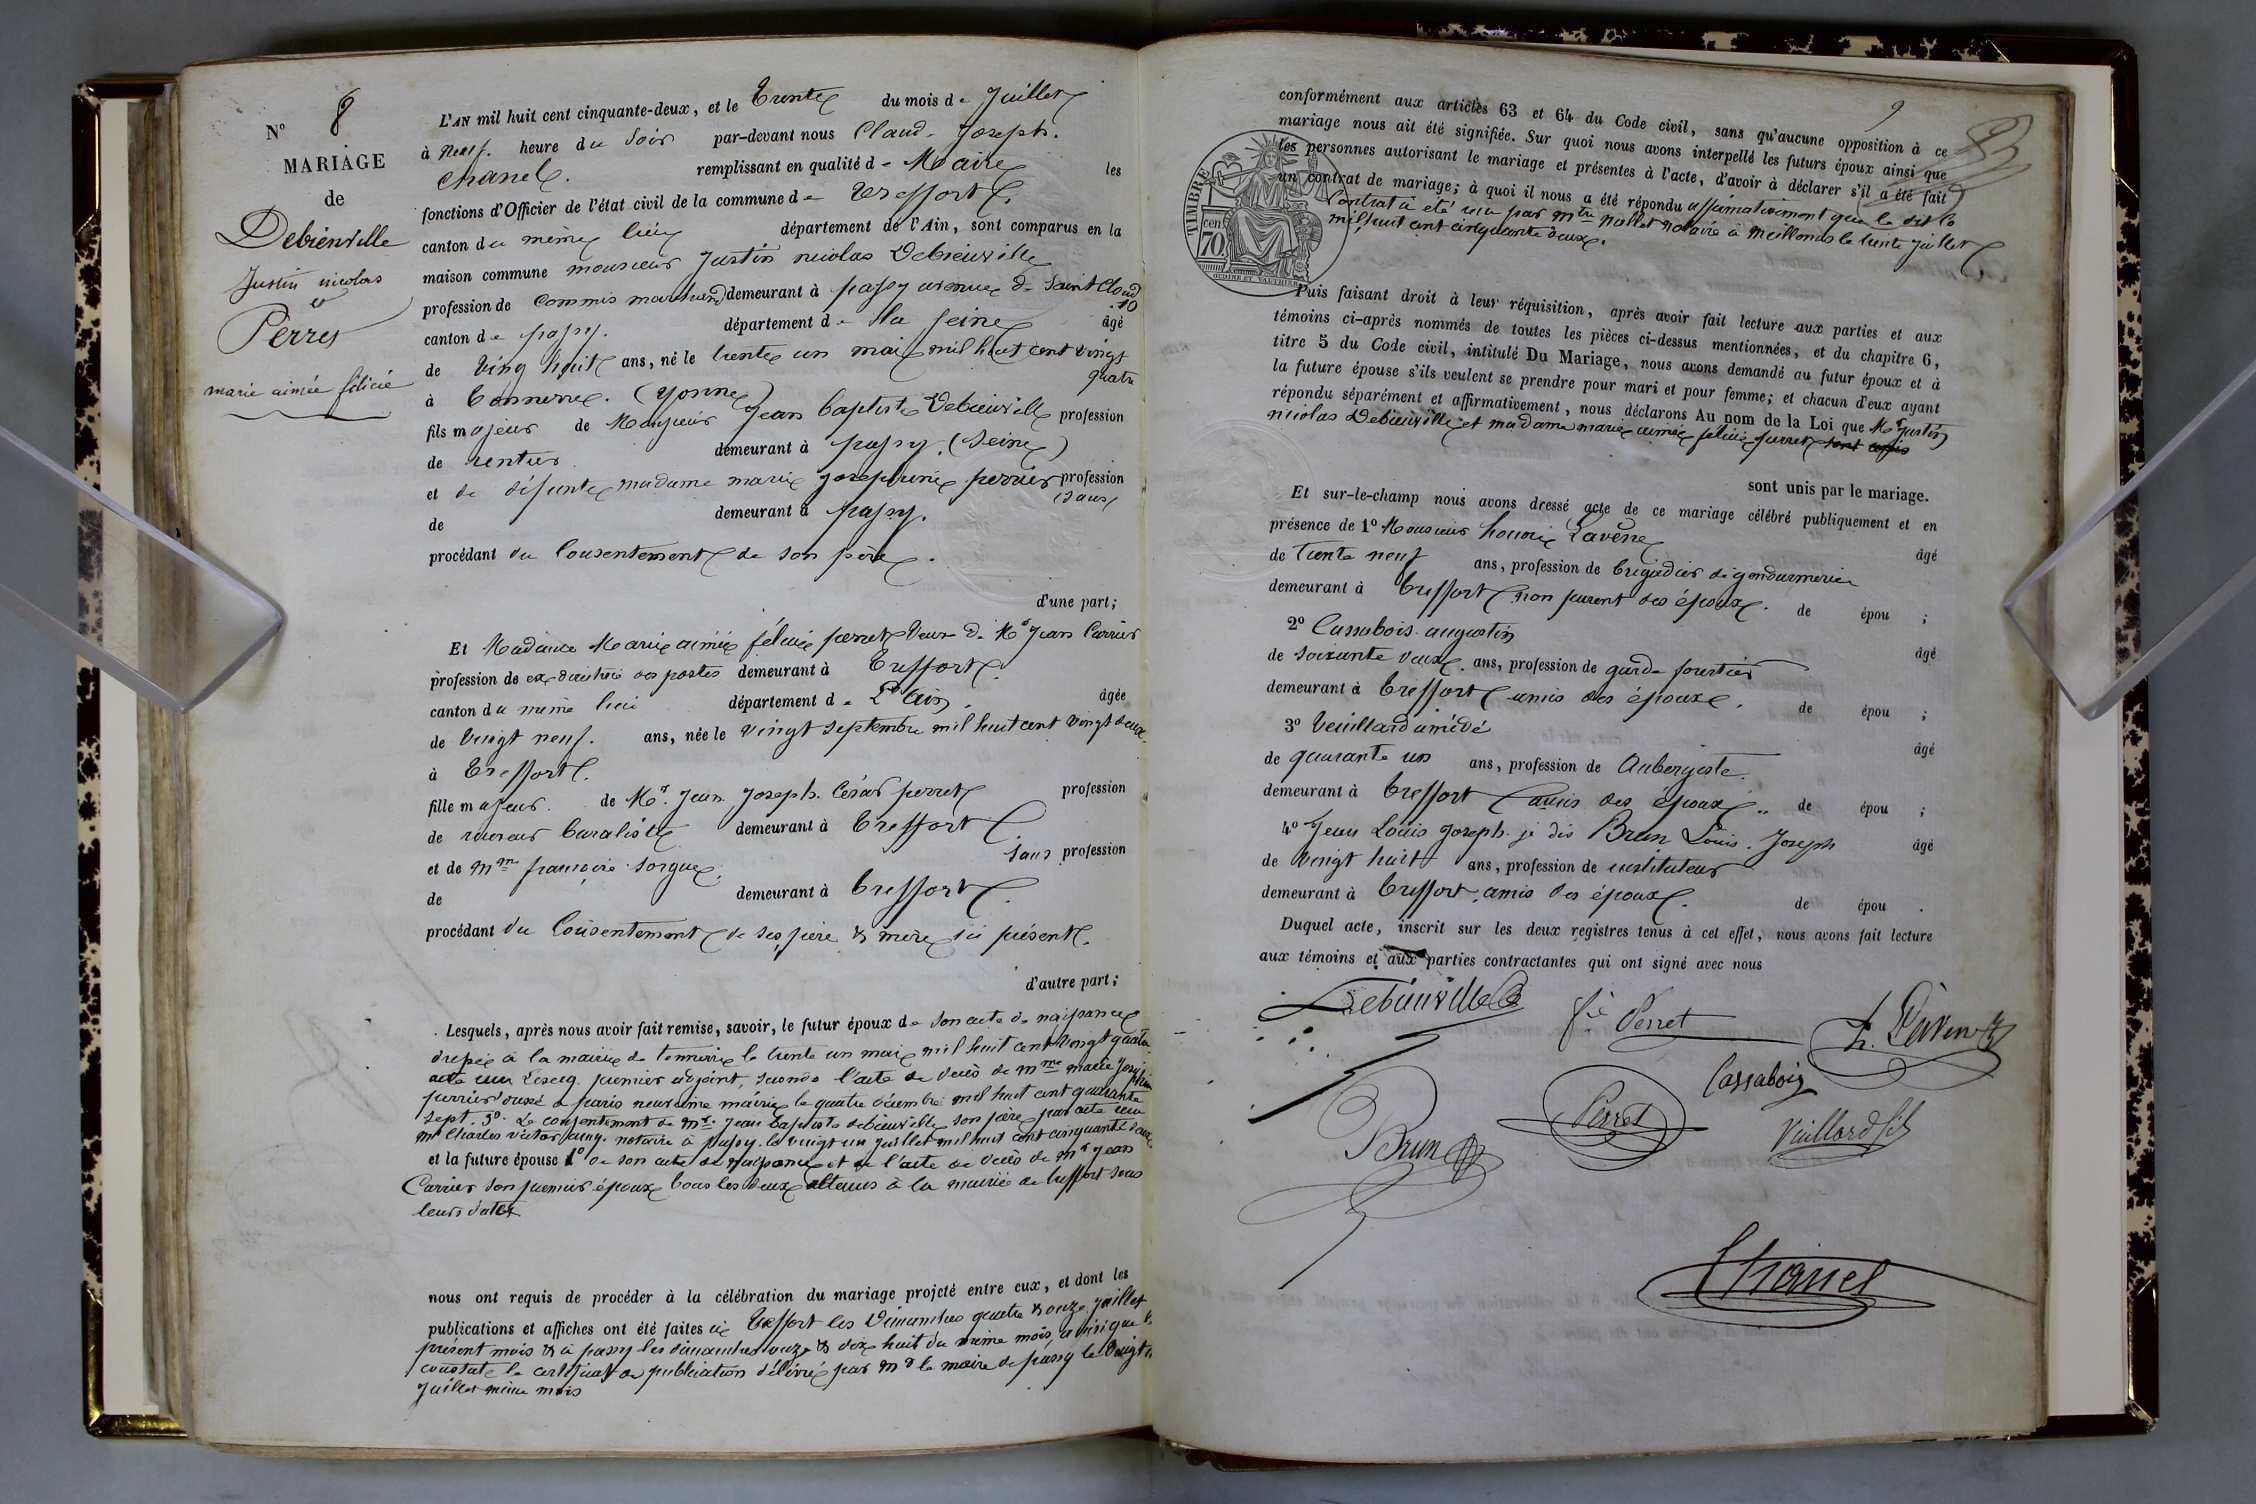 N° 8
MARIAGE
de
Debieuville
Justin nicolas
et
Perret
marie aimée félicie
L'AN mil huit cent cinquante-deux, et le trente du mois de Juillet
à neuf heure du soir par-devant nous Claude Joseph
Chanel remplissant en qualité de Maire les
fonctions d'Officier de l'état civil de la commune de Treffort
canton du même lieu département de l'Ain, sont comparus en la
maison commune monsieur Justin nicolas Debieuville
profession de commis marchand demeurant à passy avenue de Saint Cloud 10
canton de passy département de la Seine âgé
de ving huit ans, né le trente un mai mil huit cent vingt quatre
à tonnerre (yonne)
fils majeur de Monsieur Jean baptiste Debieuville profession
de rentier demeurant à passy (Seine)
et de défunte madame marie josephine perrier profession
de sans demeurant à passy.
procédant du Consentement de son père.
d'une part;
Et Madame Marie aimée félicie perret veuve de Mr Jean Carrier
profession de ex directrice des postes demeurant à Treffort
canton du même lieu département de L'Ain âgée
de vingt neuf ans, née le vingt septembre mil huit cent vingt deux
à Treffort.
fille majeur de Mr. Jean Joseph César perret profession
de receveur buraliste demeurant à treffort
et de Mme françoise Sorgue sans profession
de demeurant à treffort
procédant du Consentement de ses père & mère ici présent.
d'autre part;
Lesquels, après nous avoir fait remise, savoir, le futur époux de son acte de naissance
dressé à la mairie de tonnerre le trente un mai mil huit cent vingt quatre
premier adjoint, secondo l'acte de décès de Mme marie Joséphine
perrier dressé à paris neuvième mairie le quatre décembre mil huit cent quarante
sept. 3° Le consentement de Mr. Jean baptiste debieuville son père par acte reçu
Mr Charles victor notaire à passy le vingt un juillet mil huit cent cinquante deux
et la future épouse 1° de son acte de naissance et de l'acte de décès de Mr Jean
Carrier son premier époux tous les deux à la mairie de treffort sous
leurs dates
nous ont requis de procéder à la célébration du mariage projeté entre eux, et dont les
publications et affiches ont été faites à Treffort les Dimanches quatre & onze Juillet
présent mois & à passy les dimanches onze & dix huit du même mois, ainsi que le
constate le certificat de publication délivré par Mr le maire de passy le vingt
Juillet même mois
9
conformément aux articles 63 et 64 du Code civil, sans qu'aucune opposition à ce
mariage nous ait été signifiée. Sur quoi nous avons interpellé les futurs époux ainsi que
les personnes autorisant le mariage et présentes à l'acte, d'avoir à déclarer s'il a été fait
un contrat de mariage; à quoi il nous a été répondu affirmativement que le dit
Contrat a été reçu par Mtre nollet notaire à meillonas le trente juillet
mil huit cent cinquante deux.
TIMBRE
70 cen
OUDINE ET GAUTHIER
Puis faisant droit à leur réquisition, après avoir fait lecture aux parties et aux
témoins ci-après nommés de toutes les pièces ci-dessus mentionnées, et du chapitre 6,
titre 5 du Code civil, intitulé Du Mariage, nous avons demandé au futur époux et à
la future épouse s'ils veulent se prendre pour mari et pour femme; et chacun d'eux ayant
répondu séparément et affirmativement, nous déclarons Au nom de la Loi que Mr Justin
nicolas Debieuville et madame marie aimée félicie perret
sont unis par le mariage.
Et sur-le-champ nous avons dressé acte de ce mariage célébré publiquement et en
présence de 1° Monsieur honoré Lavène âgé
de trente neuf ans, profession de brigadier de gendarmerie
demeurant à treffort non parent des époux. de épou ;
2° Cassabois augustin âgé
de soixante deux ans, profession de garde forestier
demeurant à treffort amis des époux. de épou ;
3° Veuillard amédé âgé
de quarante un ans, profession de Aubergiste
demeurant à treffort amis des époux de épou ;
4° Jean Louis Joseph je dis Brun Louis Joseph âgé
de vingt huit ans, profession de instituteur
demeurant à treffort, amis des époux. de épou .
Duquel acte, inscrit sur les deux registres tenus à cet effet, nous avons fait lecture
aux témoins et aux parties contractantes qui ont signé avec nous
Debieuville
fie Perret
h. Lavène
Cassabois
Brun
Perret
Vuillard fils
Chanel